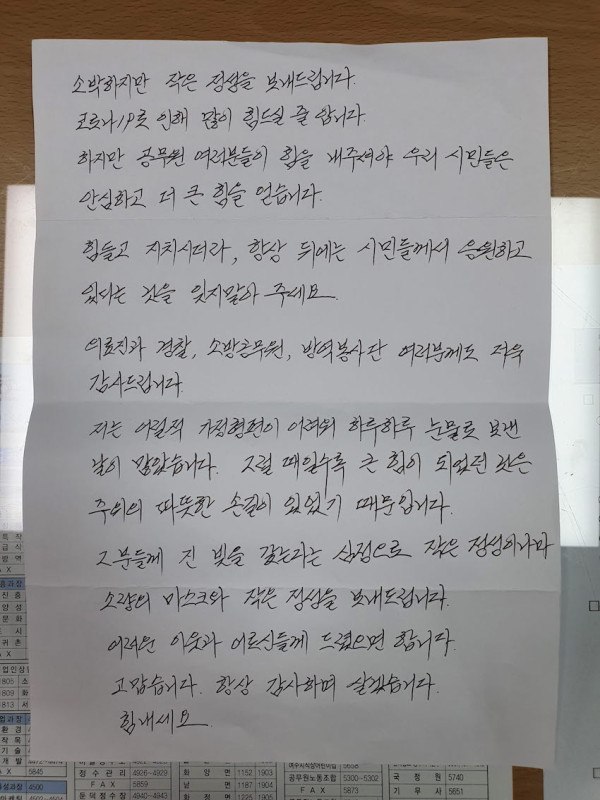 소박하지만 작은 정성을 보내드립니다.
코로나19로 인해 많이 힘드실 줄 압니다.
하지만 공무원 여러분들이 힘을 내주셔야 우리 시민들은
안심하고 더 큰 힘을 얻습니다.
힘들고 지치시더라, 항상 뒤에는 시민들께서 응원하고
있다는 것을 잊지말아 주세요.
의료진과 경찰, 소방공무원, 방역봉사단 여러분께도 겨우
감사드립니다
저는 어릴적 가정형편이 어려워 하루하루 눈물로 보낸
날이 많았습니다. 그럴 때일수록 큰 힘이 되었던 것은
주위의 따뜻한 손길이 있었기 때문입니다.
그분들께 진 빚을 갚는다는 심정으로 작은 정성이나마
소량의 마스크와 작은 정성을 보내드립니다.
어려운 이웃과 어르신들께 드렸으면 합니다.
고맙습니다. 항상 감사하며 살겠습니다.
힘내세요.
FAX 5845
정수관리 4926~4929
FAX 4859
둔덕정수장 4940~4943
화양면 1152 1903
남면 1187 1904
공무원노동조합 5300~5302
FAX 5873
국정원 5740
기무사 5651